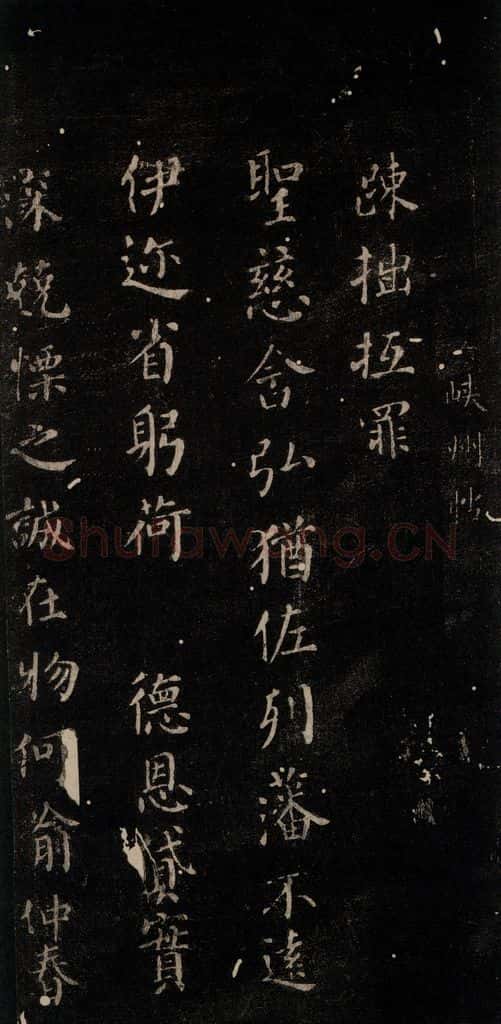 峡州帖
踈拙抵罪
聖慈含弘猶佐列藩不遠
伊迩省躬荷 德恩貸實
深兢慄之誠在物何俞仲春
Shufawang.CN